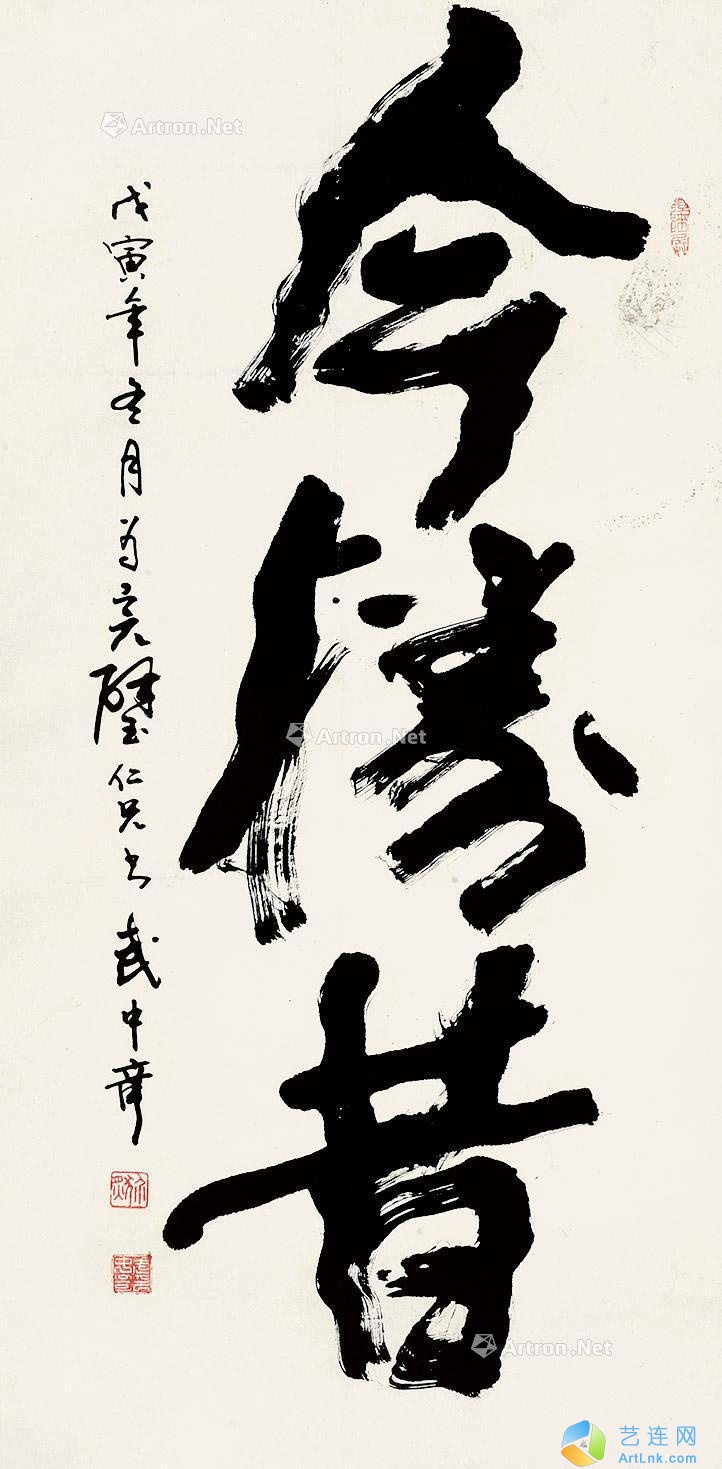 今勝昔
戊寅年冬月为亮璧仁兄书 武中奇
Artron.Net
Artron.Net
Artron.Net
艺连网
ArtLnk.com